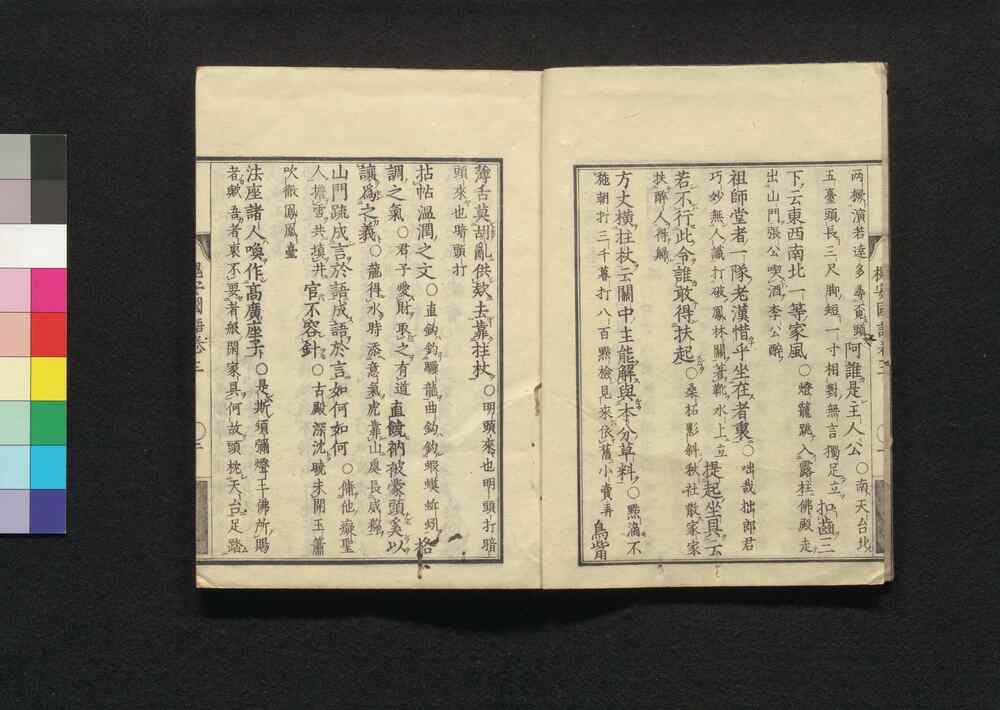 两橛演若達多尋覓頭阿誰是主人公○南天台北
五臺頭長三尺脚短一寸相對無言獨足立扣齒三
下云東西南北一等家風○燈籠跳入露柱佛殿走
出山門張公喫酒李公醉
祖師堂者一隊老漢惜乎坐在者裏○咄哉拙郎君
巧妙無人識打破鳳林關著靴水上立提起坐具云
若不行此令誰敢得扶起○桑柘影斜秋社散家家
扶醉人得歸
方丈橫拄杖云關中主能解與本分草料○點滴不
施朝打三千暮打八百點檢見來依舊小賣弄鳥觜
薄舌莫胡亂供欵去靠拄杖○明頭來也明頭打暗
頭來也暗頭打
拈帖溫潤之文○直鈎釣驪龍曲鈎釣蝦蟆蚯蚓格
調之氣○君子愛財取之有道直饒衲被蒙頭奚以
讓爲之義○龍得水時添意氣虎靠山處長威獰
山門疏成言於語成語於言如何如何○傭他癡聖
人擔雪共填井官不容針○古殿深沈曉未開玉簫
吹徹鳳凰臺
法座諸人喚作高廣座子○是斯須彌燈王佛所賜
者獻吾者裏不要者般閑家具何故頭枕天台足踏